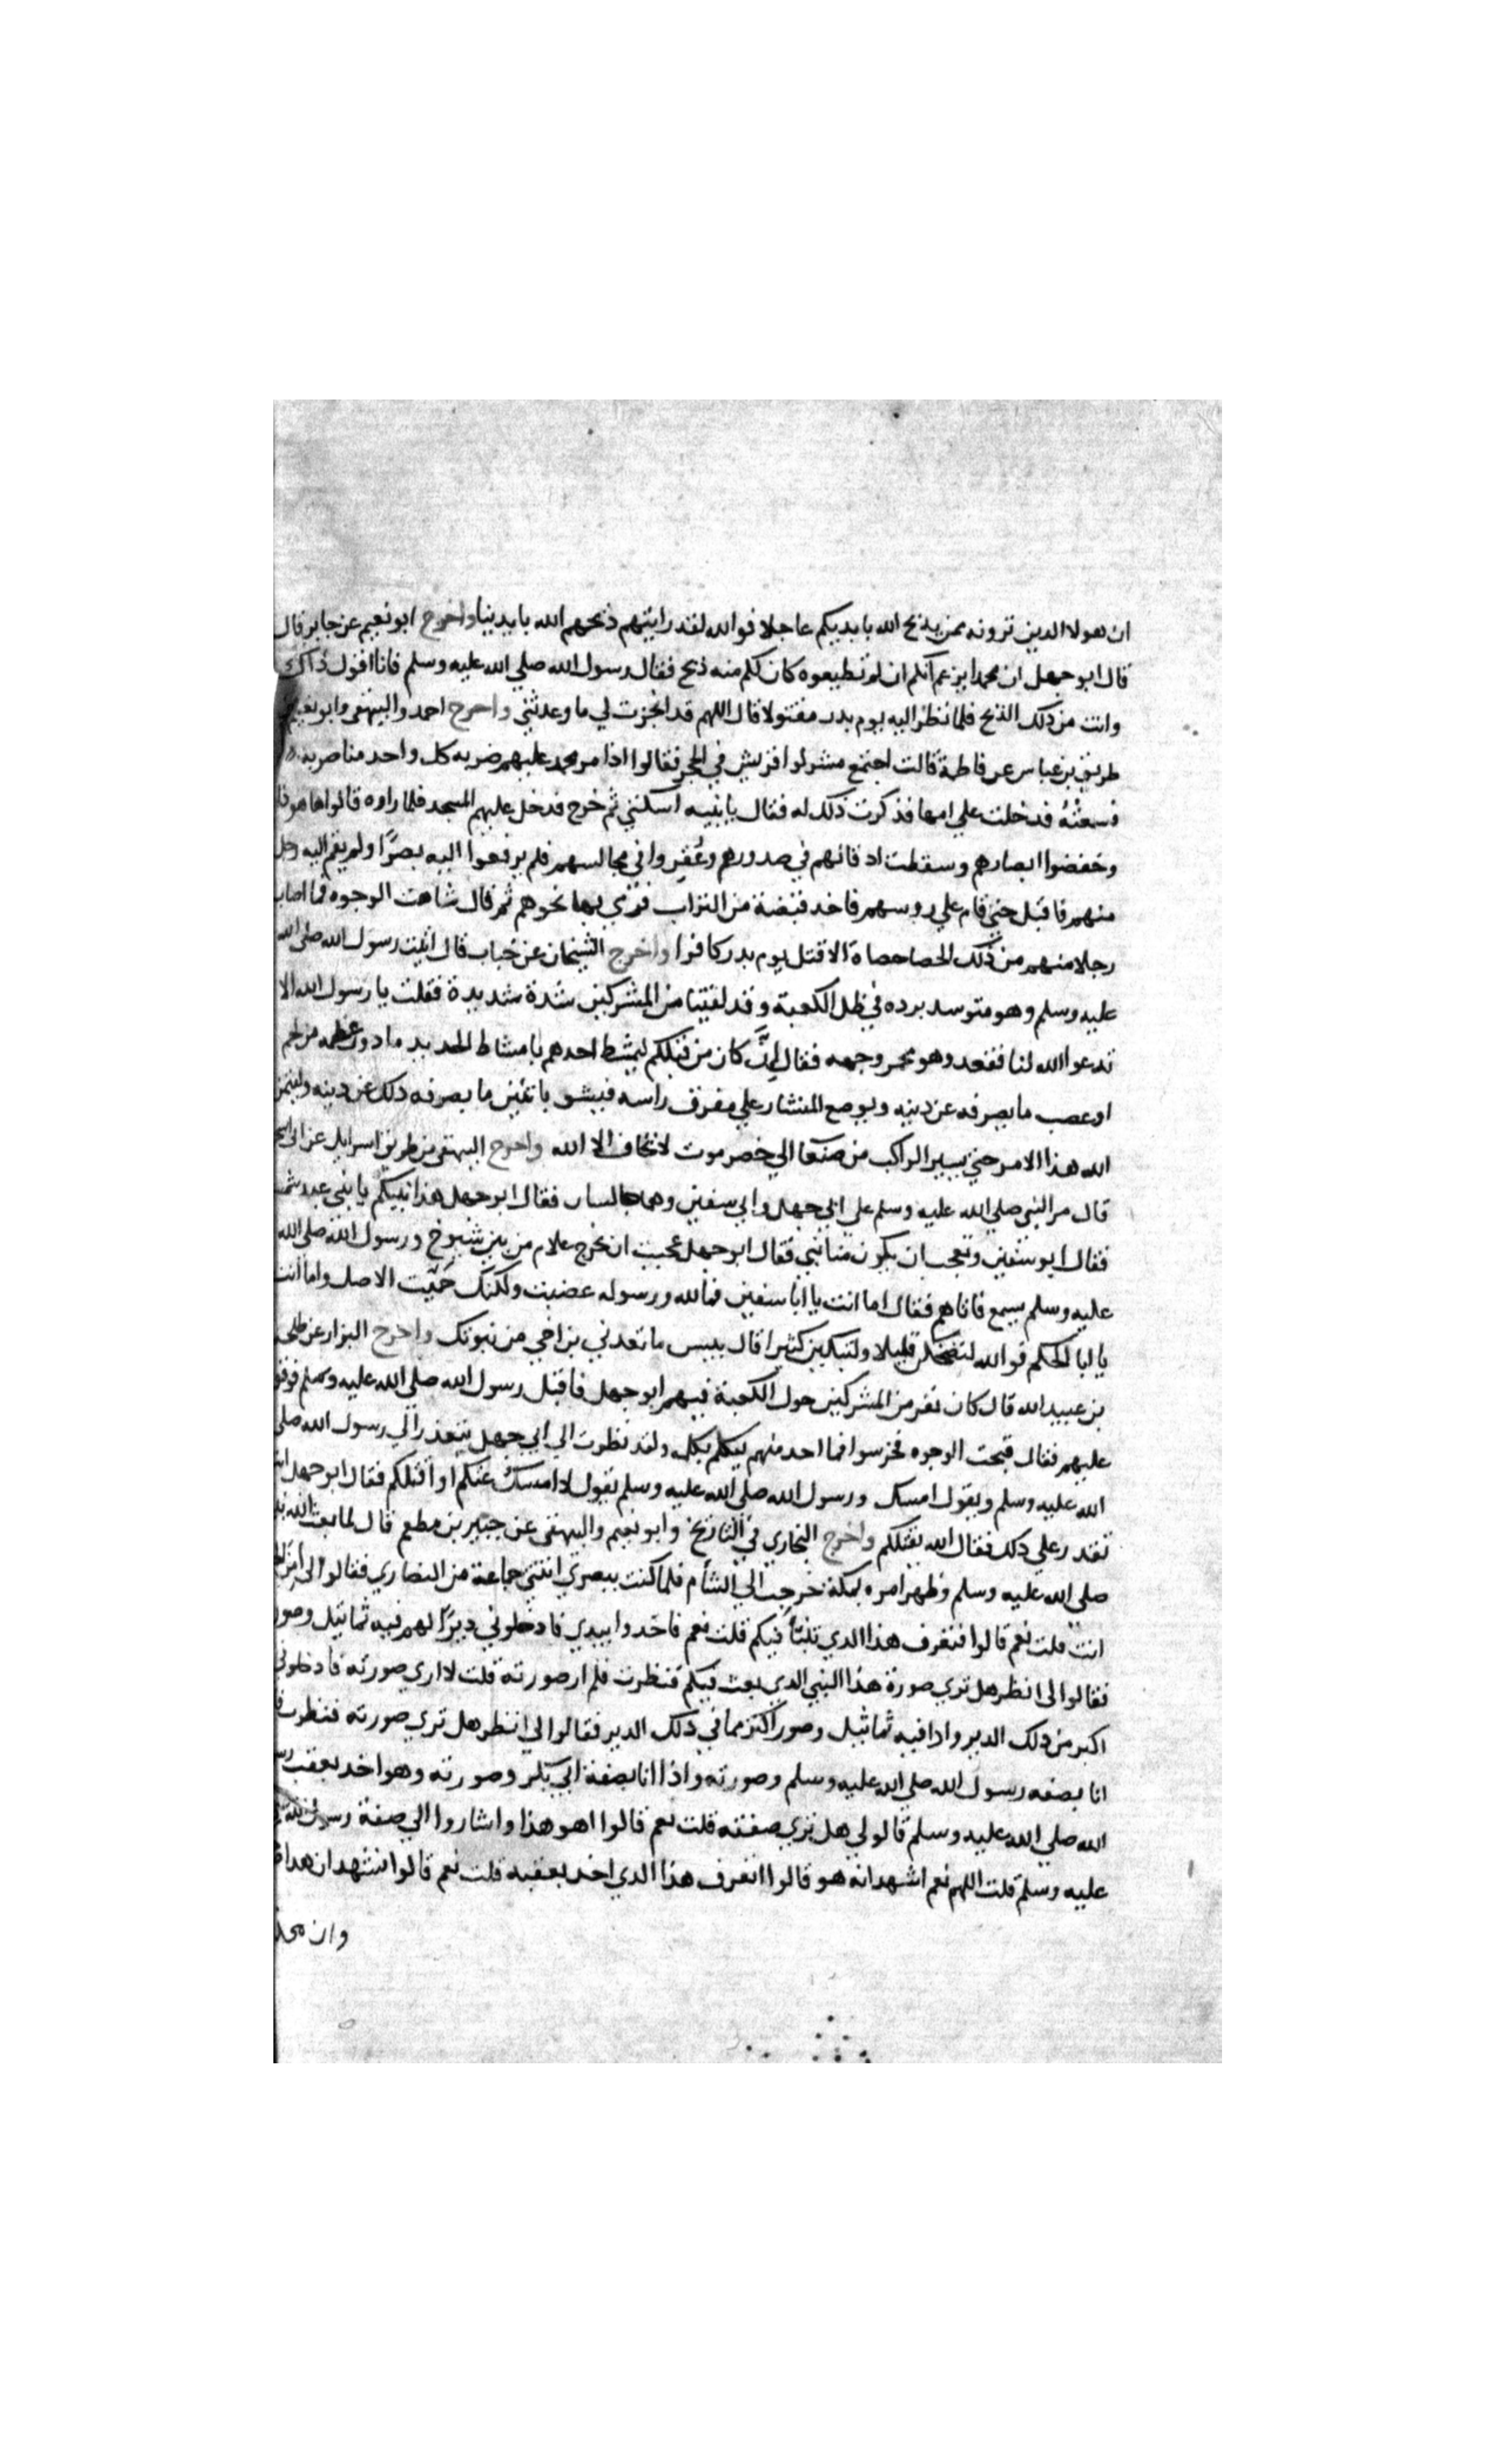 ان هولا الدين ترونه ممن يذبح الله بايديكم عاجلا فوالله لقد رايتهم ذبحهم الله بايدينا واخرج ابو نعيم عن جابر قال
قال ابو جهل ان محمدا يزعم انكم ان لم تطيعوه كان لكم منه ذبح فقال رسول الله صلي الله عليه وسلم فانا اقول ذاك
وانت من ذلك الذبح فلما نظر اليه يوم بدر مقتولا قال اللهم قد انجزت لي ما وعدتني واخرج احمد والبيهقي وابو نعيم
طريق بن عباس عن فاطمة قالت اجتمع مشركوا قريش في الحجر فقالوا اذا مر محمد عليهم ضربه كل واحد منا ضربه
فسمعته فدخلت علي امها فذكرت ذلك له فقال يا بنيه اسكتي ثم خرج فدخل عليهم المسجد فلما راوه قالوا ها هو ذا
وخفضوا ابصارهم وسقطت اذقانهم في صدورهم وعُقِروا في مجالسهم فلم يرفعوا اليه بصرًا ولم يقم اليه رجل
منهم فاقبل حتي قام علي روسهم فاخد قبضة من التراب فرمي بها نحوهم ثم قال شاهت الوجوه فما اصاب
رجلا منهم من ذلك الحصا حصاة الا قتل يوم بدر كافرا واخرج الشيخان عن خباب قال اتيت رسول الله صلي الله
عليه وسلم وهو متوسد برده في ظل الكعبة وقد لقينا من المشركين شدة شديدة فقلت يا رسول الله الا
تدعوا الله لنا فقعد وهو محمر وجهه فقال إنْ كان من قبلكم ليمشط احدهم بامشاط الحديد ما دون عظمه من لحم
او عصب ما يصرفه عن دينه ويوضع المنشار علي مفرق راسه فيشق باثنين ما يصرفه ذلك عن دينه وليتمن
الله هذا الامر حتي يسير الراكب من صنعا الي حضرموت لا يخاف الا الله واخرج البيهقي من طريق اسرايل عن ابي اسحق
قال مر النبي صلي الله عليه وسلم علي ابي جهل وابي سفين وهما جالسان فقال ابو جهل هذا نبيكم يا بني عبد شمس
فقال ابو سفين وتعجب ان يكون منا نبي فقال ابو جهل عجبت ان يخرج غلام من بين شيوخ ورسول الله صلي الله
عليه وسلم يسمع فاتاهم فقال اما انت يا ابا سفين فما لله ورسوله غضبت ولكنك حَمِيت الاصل واما انت
يا ابا الحكم فوالله لتضحكن قليلا ولتبكين كثيرا قال بيس ما تعدني بن اخي من نبوتك واخرج البزار عن طلحه
بن عبيد الله قال كان نفر من المشركين حول الكعبة فيهم ابو جهل فاقبل رسول الله صلي الله عليه وسلم فوقف
عليهم فقال قبحت الوجوه فخرسوا فما احد منهم يتكلم بكلمه ولقد نظرت الي ابي جهل يتعذر الي رسول الله صلي
الله عليه وسلم ويقول امسك ورسول الله صلي الله عليه وسلم يقول لا امسك عنكم او اقتلكم فقال ابو جهل انت
تقدر علي ذلك فقال الله يقتلكم واخرج البخاري في التاريخ وابو نعيم والبيهقي عن جبير بن مطعم قال لما بعث الله نبيه
صلي الله عليه وسلم وظهر امره بمكة خرجت الي الشام فلما كنت ببصري اتتني جماعة من النصاري فقالوا لي امن الحرم
انت قلت نعم قالوا فتعرف هذا الدي تنبّأ فيكم قلت نعم فاخدوا بيدي فادخلوني ديرًا لهم فيه تماثيل وصور
فقالوا لي انظر هل تري صورة هذا النبي الدي بعث فيكم فنظرت فلم ار صورته قلت لا اري صورته فادخلوني
اكبر من ذلك الدير وادا فيه تماثيل وصور اكثر مما في ذلك الدير فقالوا لي انظر هل تري صورته فنظرت فاذا
انا بصفه رسول الله صلي الله عليه وسلم وصورته واذا انا بصفة ابي بكر وصورته وهو اخد بعقب رسول
الله صلي الله عليه وسلم قالو لي هل تري صفته قلت نعم قالوا اهو هذا واشاروا الي صفة رسول الله صلي
عليه وسلم قلت اللهم نعم اشهد انه هو قالوا اتعرف هذا الدي اخد بعقبه قلت نعم قالوا نشهد ان هدا
وان محمد